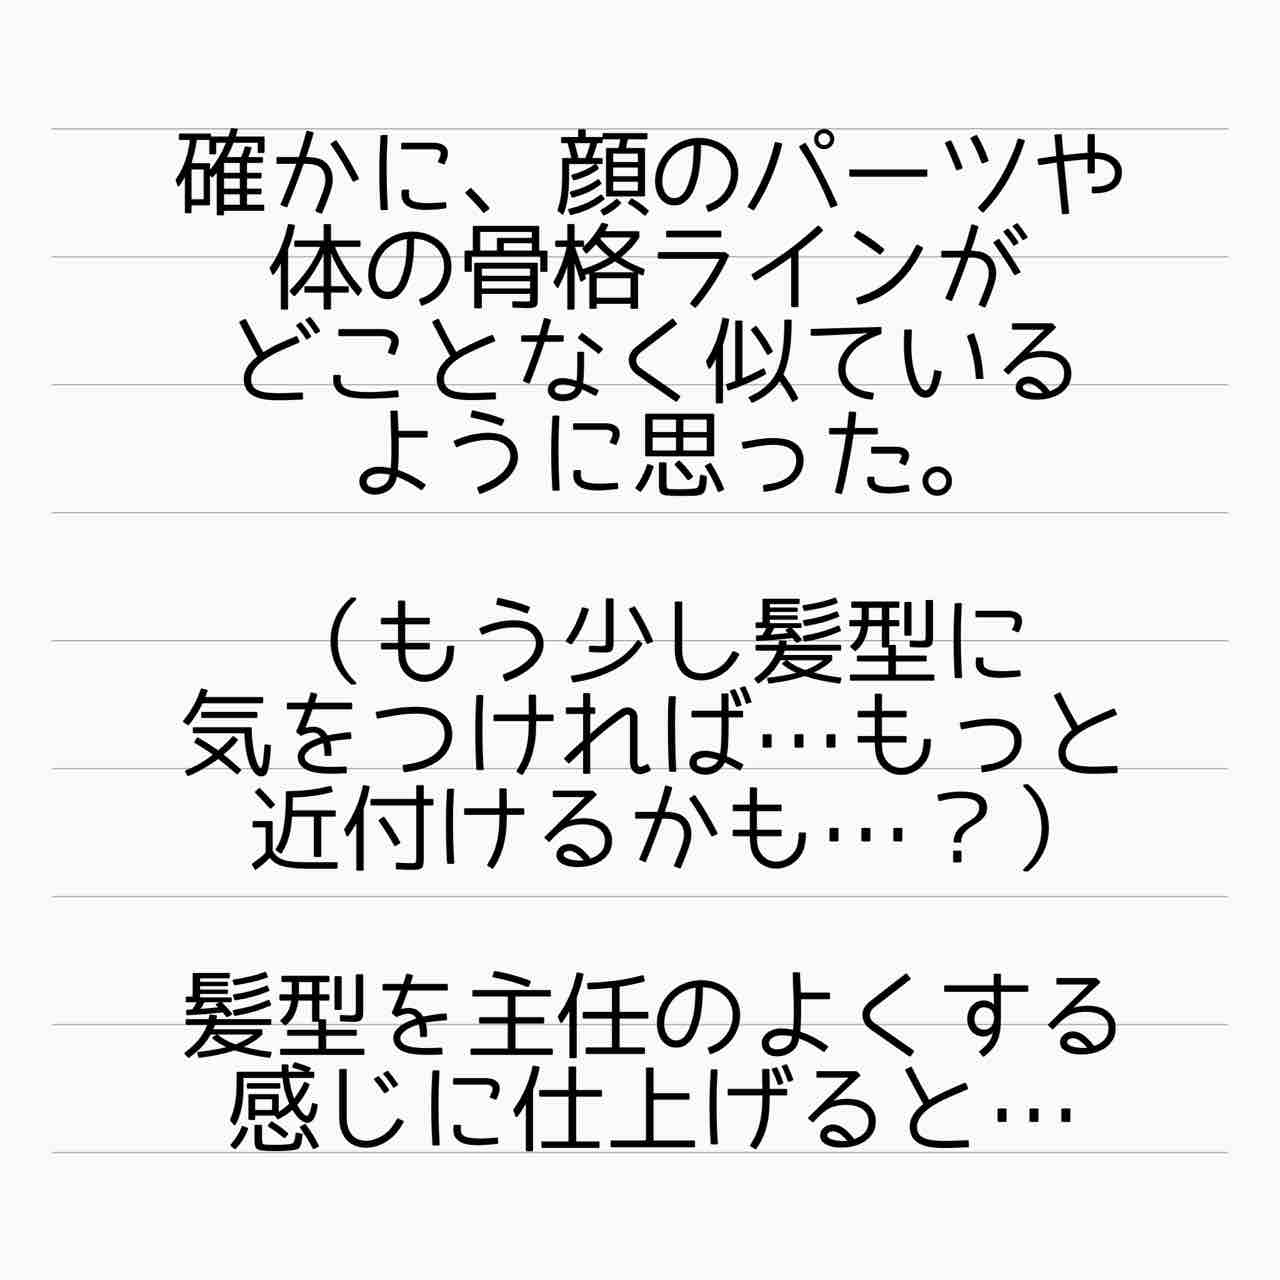 確かに、顔のパーツや
体の骨格ラインが
どことなく似ている
ように思った。
（もう少し髪型に
気をつければ…もっと
近付けるかも…？）
髪型を主任のよくする
感じに仕上げると…